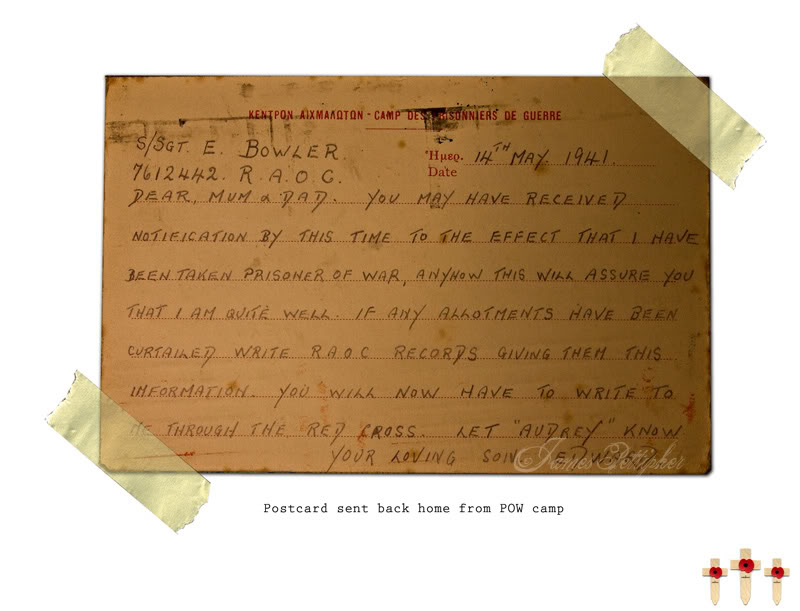 ΚΕΝΤΡΟΝ ΑΙΧΜΑΛΩΤΩΝ - CAMP DES PRISONNIERS DE GUERRE
S/SGT. E. BOWLER.
Ἡμερ. 14TH MAY. 1941.
7612442. R.A.O.C.
Date
DEAR, MUM & DAD. YOU MAY HAVE RECEIVED
NOTIFICATION BY THIS TIME TO THE EFFECT THAT I HAVE
BEEN TAKEN PRISONER OF WAR, ANYHOW THIS WILL ASSURE YOU
THAT I AM QUITE WELL. IF ANY ALLOTMENTS HAVE BEEN
CURTAILED WRITE R A O C RECORDS GIVING THEM THIS
INFORMATION. YOU WILL NOW HAVE TO WRITE TO
ME THROUGH THE RED CROSS. LET "AUDREY" KNOW
YOUR LOVING SON. EDWARD
Postcard sent back home from POW camp